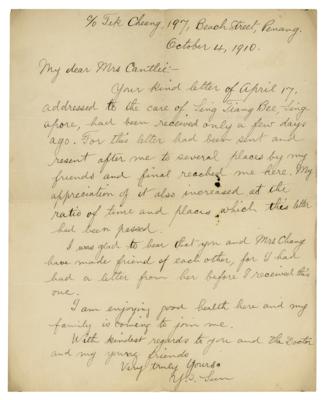 c/o Tek Cheang, 197, Beach Street, Penang.
October 4, 1910.
My dear Mrs Cantlie:-
Your kind letter of April 17,
addressed to the care of Sing Tiang Bee, Sing-
apore, had been received only a few days
ago. For this letter had been sent and
resent after me to several places by my
friends and final reached me here. My
appreciation of it also increased at the
ratio of time and places which this letter
had been passed.
I was glad to hear that you and Mrs Chang
have made friend of each other, for I had
had a letter from her before I received this
one.
I am enjoying good health here and my
family is coming to join me.
With kindest regards to you and the Doctor
and my young friends
Very truly Yours
Y. S. Sun